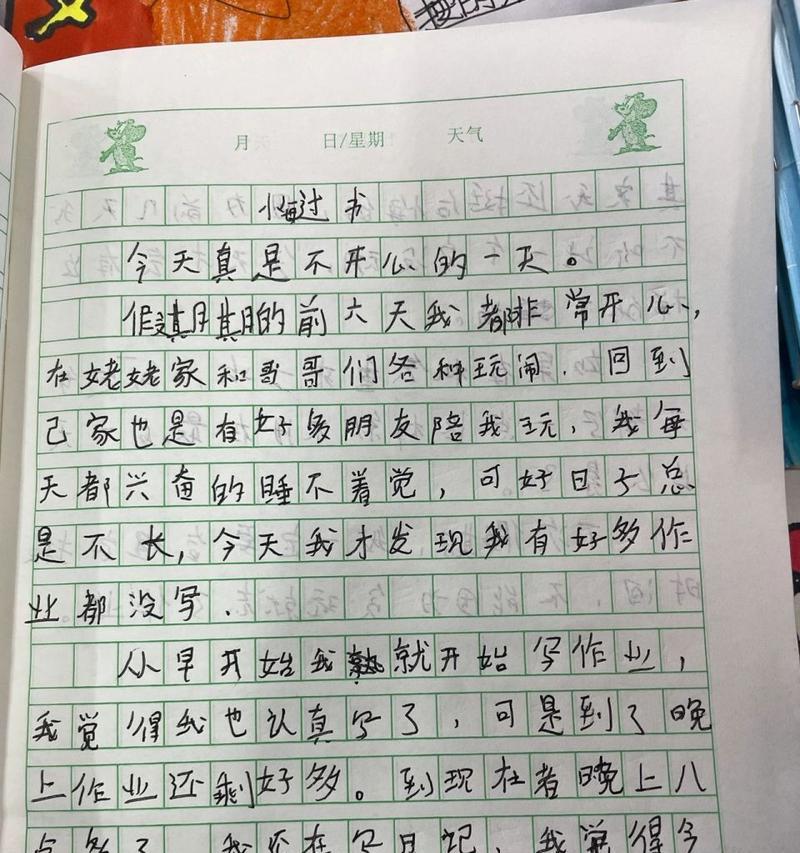 月 日/星期 天气
悔过书
今天真是不开心的一天。
假期的前六天我都非常开心,
在姥姥家和哥哥们各种玩闹.回到
己家也是有好多朋友陪我玩,我每
天都兴奋的睡不着觉,可好日子总
是不长,今天我才发现我有好多作
业都没写.
从早开始我就开始写作业,
我觉得我也认真写了,可是到了晚
上作业还剩好多。到现在者晚上八
点多了 我还在写日记,我觉得今